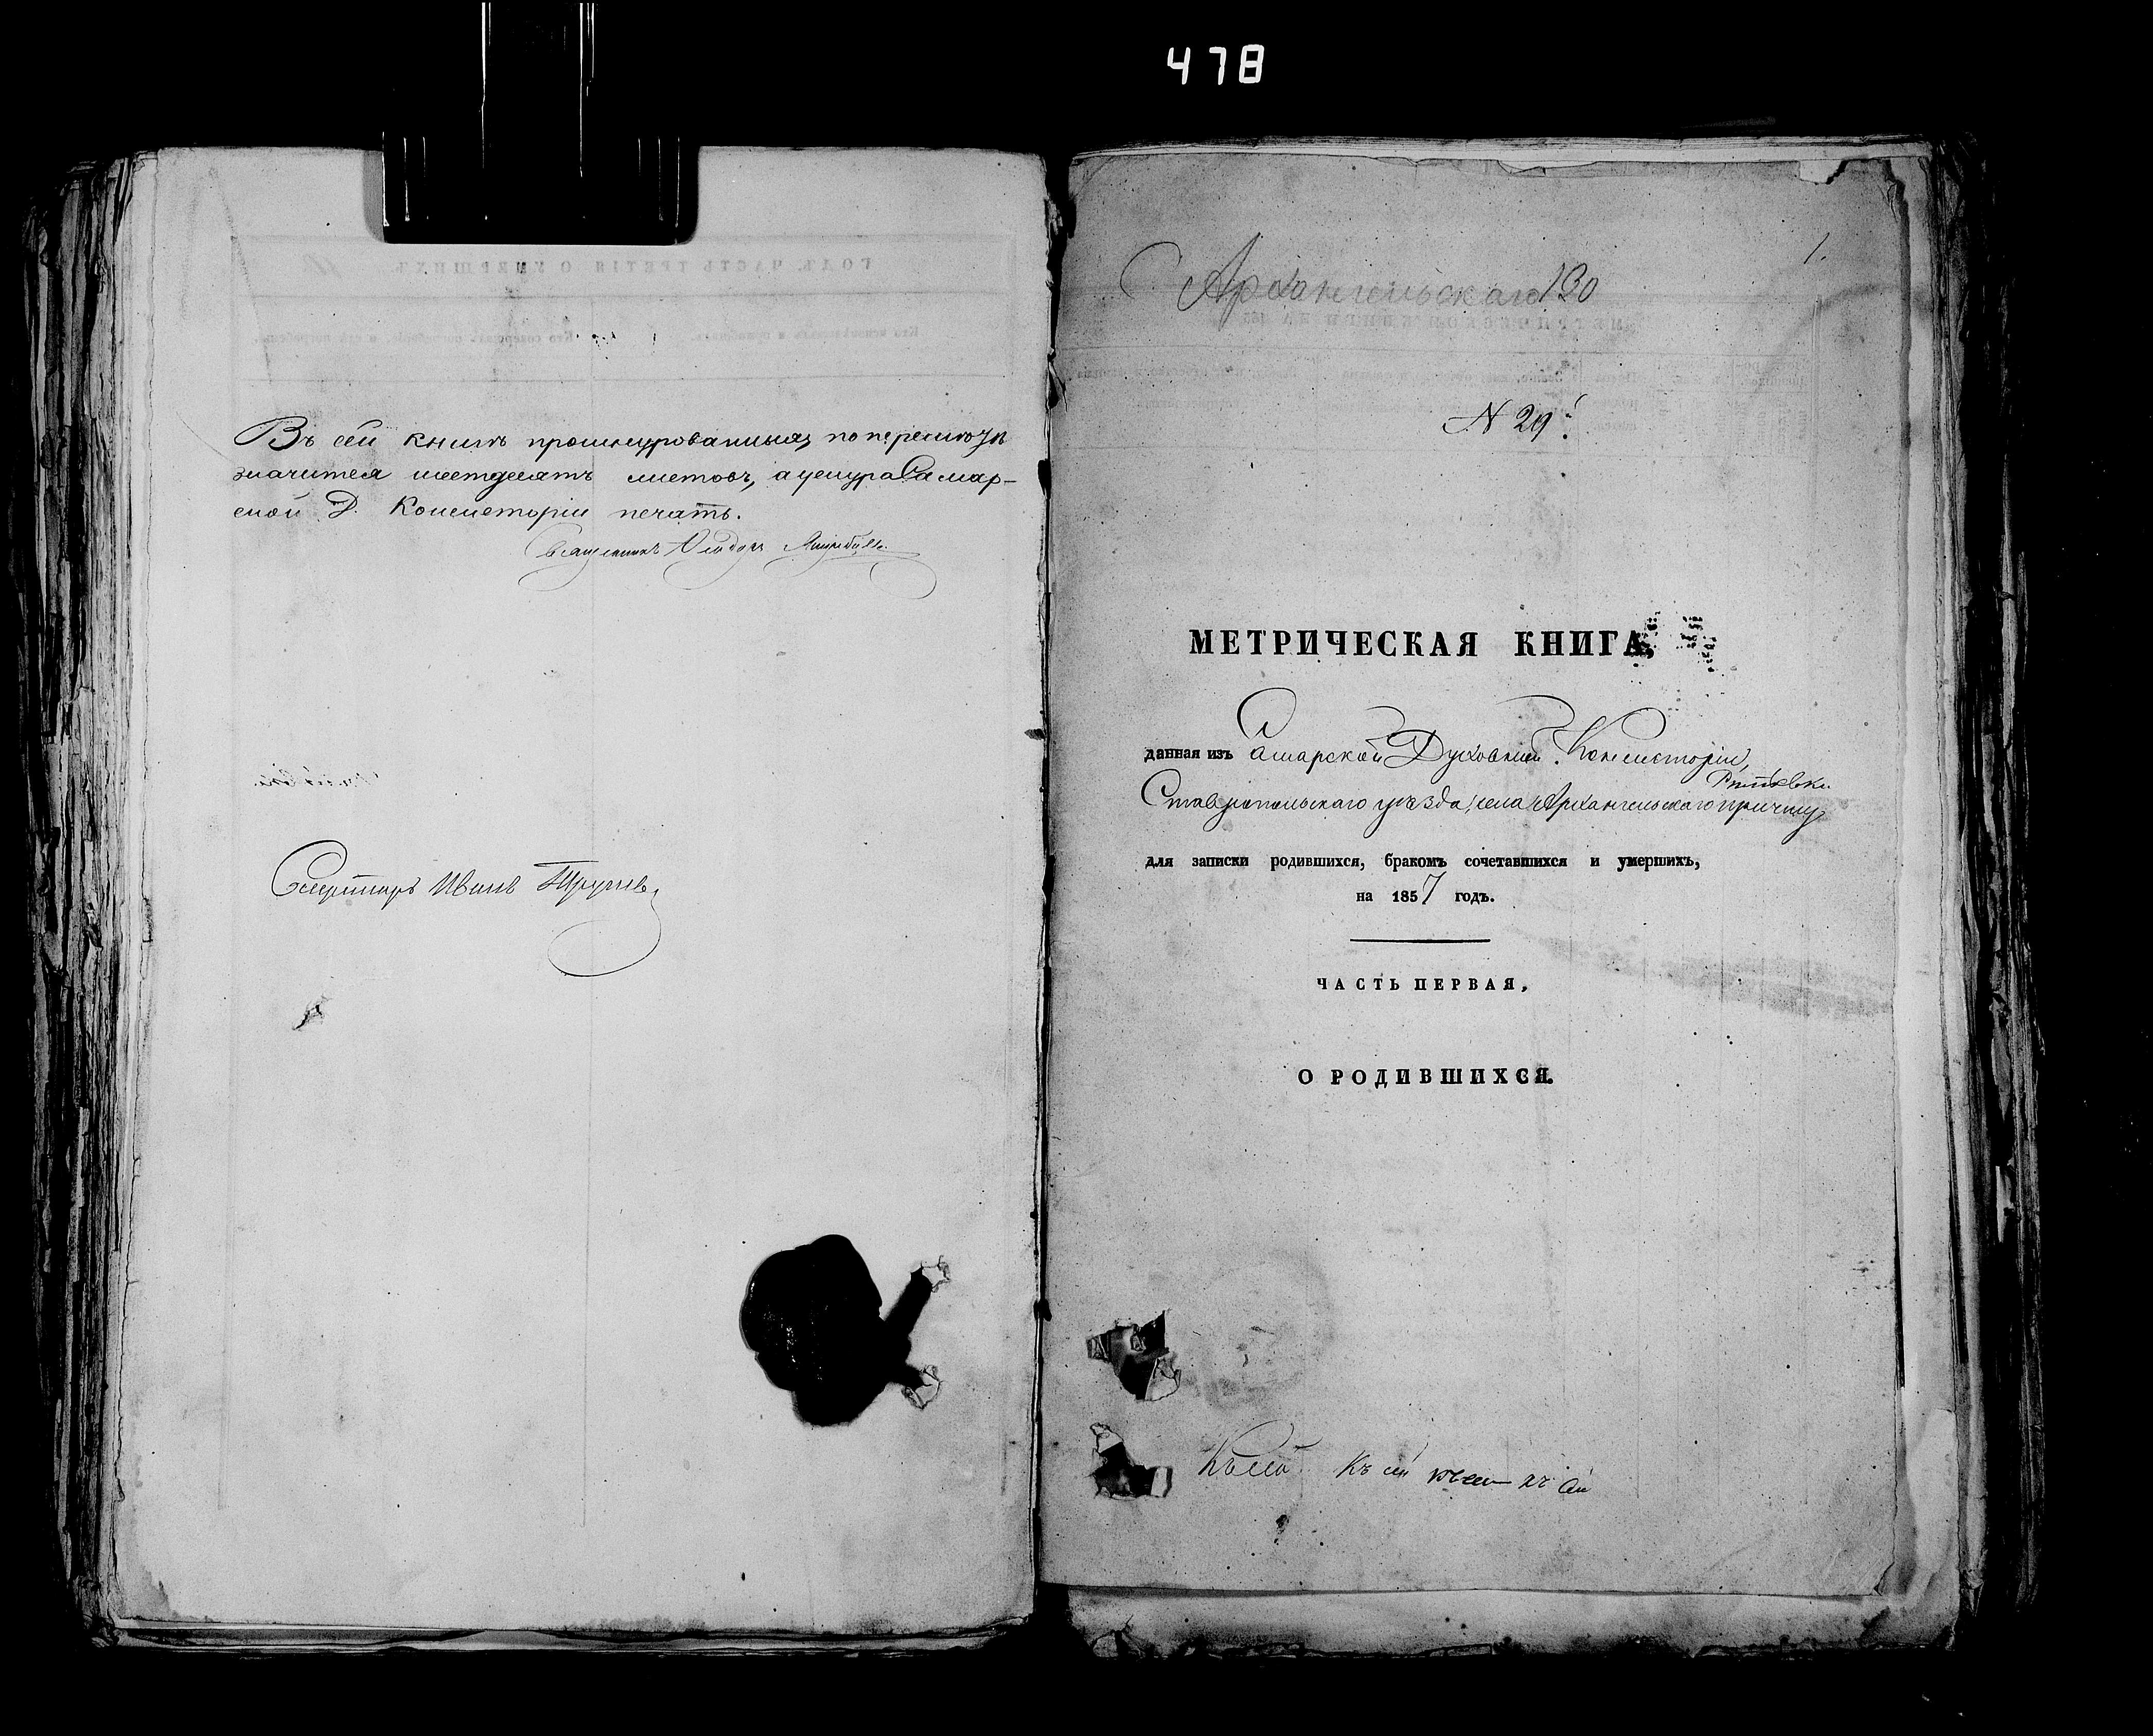 478
Въ сей книгѣ прошнурованныхъ по перечню
значится шестдесятъ листовъ, а у шнура Самар-
ской Д. Консисторіи печать.
Священникъ
Секретарь Иванъ
1.
С Архангельскаго 130
N 29.
МЕТРИЧЕСКАЯ КНИГА,
данная изъ Самарской Духовной Консисторіи,
Ставропольскаго уѣзда, села Архангельскаго причту
для записки родившихся, бракомъ сочетавшихся и умершихъ,
на 1857 годъ.
ЧАСТЬ ПЕРВАЯ,
О РОДИВШИХСЯ.
Къ сей къ сей